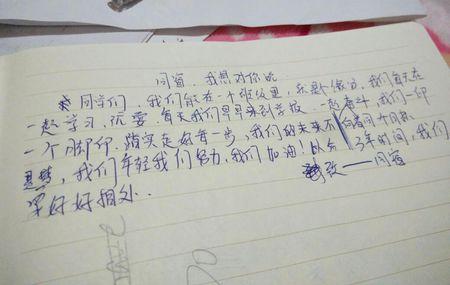 同窗，我想对你说
同学们，我们能在一个班级里，亲是个缘份，我们每天在
一起学习，玩耍，每天我们早早来到学校，一起奋斗，我们一印
一个脚印，踏实走好每一步，我们的未来不
，我们年轻我们努力，我们加油！以后3年时间，我们
要好好相处．
致——同窗